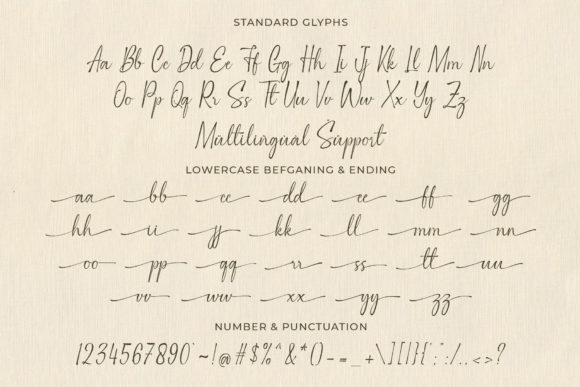 STANDARD GLYPHS
Aa Bb Cc Dd Ee Ff Gg Hh Ii Jj Kk Ll Mm Nn
Oo Pp Qq Rr Ss Tt Uu Vv Ww Xx Yy Zz
Multilingual Support
LOWERCASE BEFGANING & ENDING
aa bb cc dd ee ff gg
hh ii jj kk ll mm nn
oo pp qq rr ss tt uu
vv ww xx yy zz
NUMBER & PUNCTUATION
1234567890`~!@#$%^&*()-=_+\][|}{":;/.,<>?